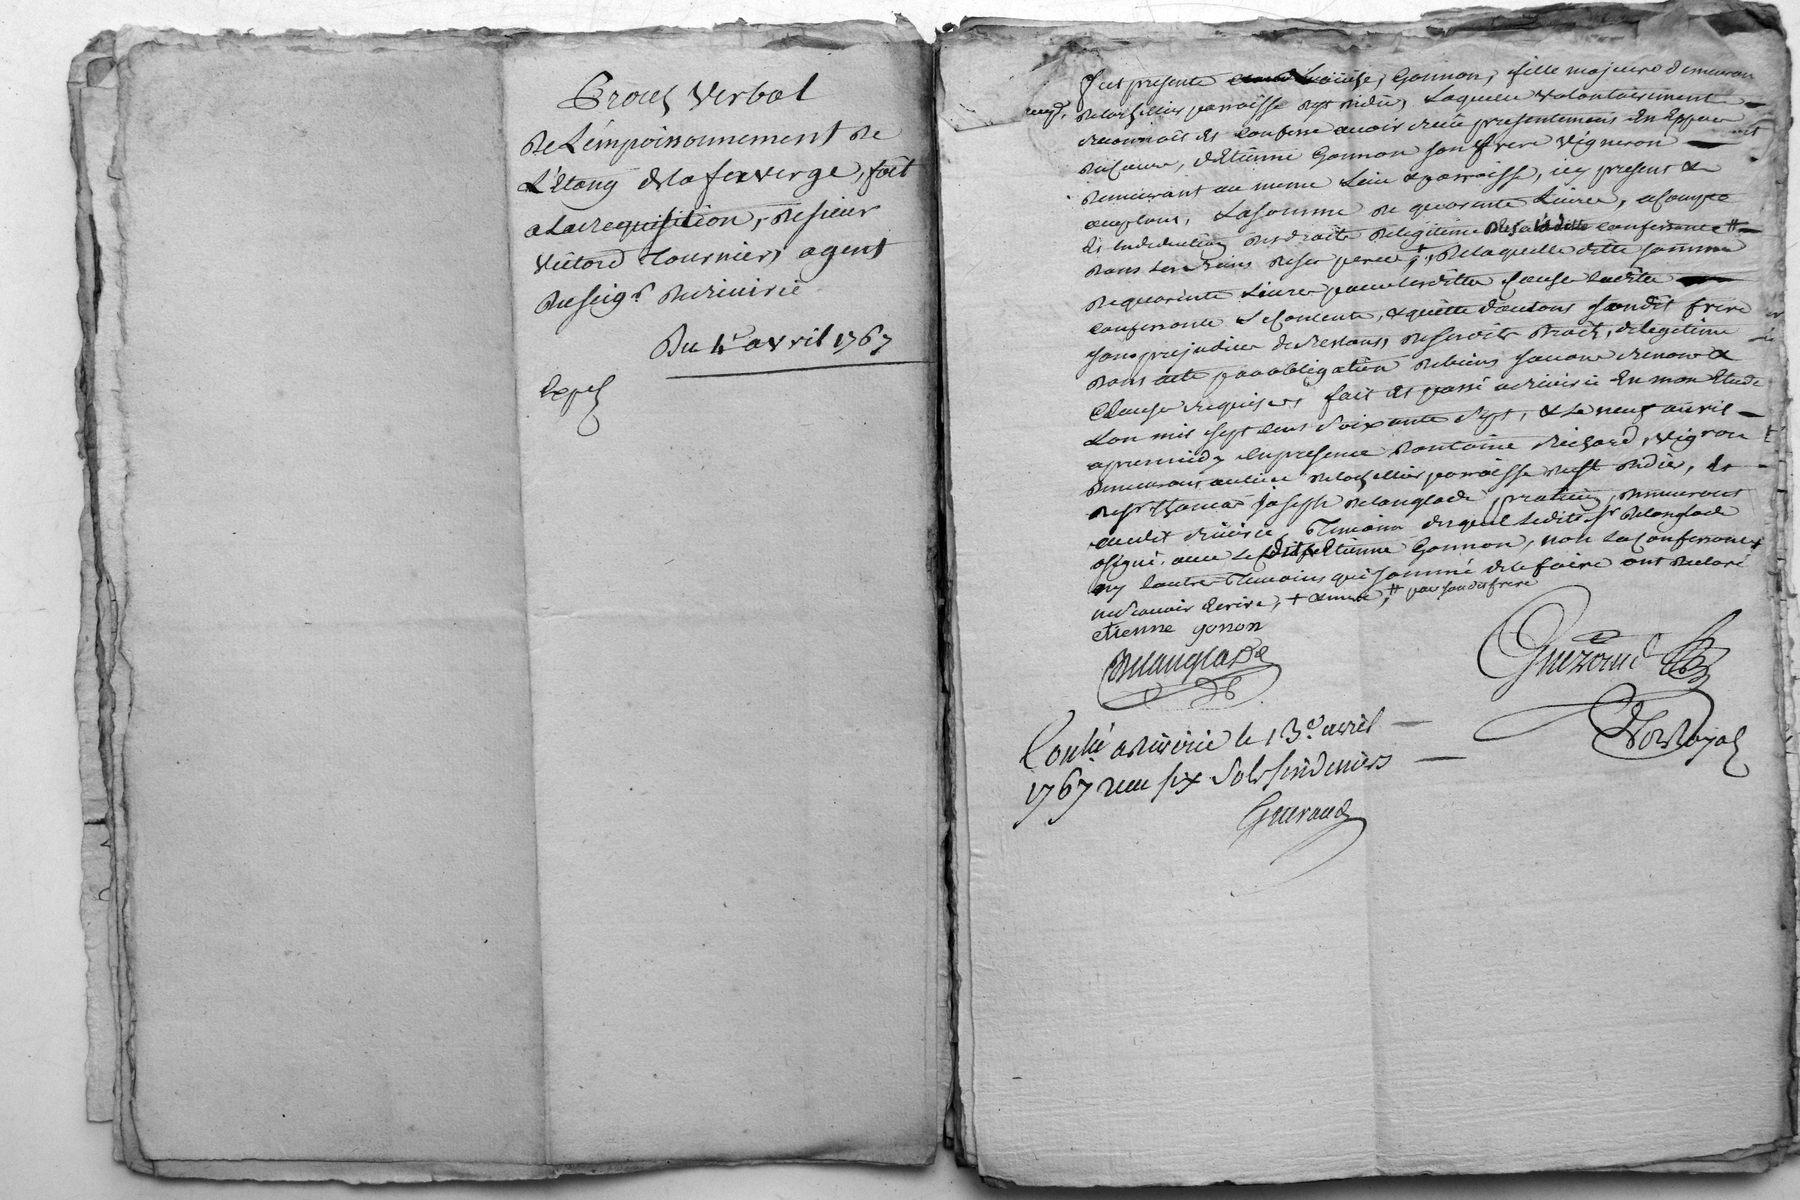 Proces verbal
de L'empoissonnement de
L'Etang de la faverge, fait
a La requisition, de sieur
victord Tournier, agent
du seigr. de riverie
Du 4e avril 1767
Exped
fut presente Louise, Gonnon, fille majeure demeurant
exped.
paroisse de st didier, Laquelle volontairement
reconnoit et confesse avoir reçu presentement En Especes
de Cours, d'Etienne Gonnon son frere vigneron
demeurant au meme Lieu & paroisse, icy present &
acceptant, La somme de quarente Livres, acompte
Et En deduction des droits de legitime de la ditte confessante #
dans Les biens de ses pere , de laquelle ditte somme
de quarente Livres pour les dittes Causes Ladite
confessante se contente, & quitte d'autant son dit frere
sans prejudice du restant, de ses dits droits, de legitime
dont acte par obligation de biens renon &
Clauses requises, fait et passé a riverie En mon Etude
L'an mil sept cent soixante sept, & Le neuf avril
apres midy En presence d'antoine Richard, vigneron
demeurant au lieu paroisse de st didier, Et
de sr Thomas Joseph Delanglade, praticien, demeurant
audit riverie, Temoins desquels Ledit sr Delanglade
a signé, avec Le dit Etienne Gonnon, non La Confessante +
ny L'autre Temoins qui sommé de le faire ont declaré
ne scavoir Ecrire, + , # par son dit frere
etienne gonon
Delanglade
Gueraud
Contlé a Riverie le 13e. avril
1767 reçu six sols six deniers
Gueraud